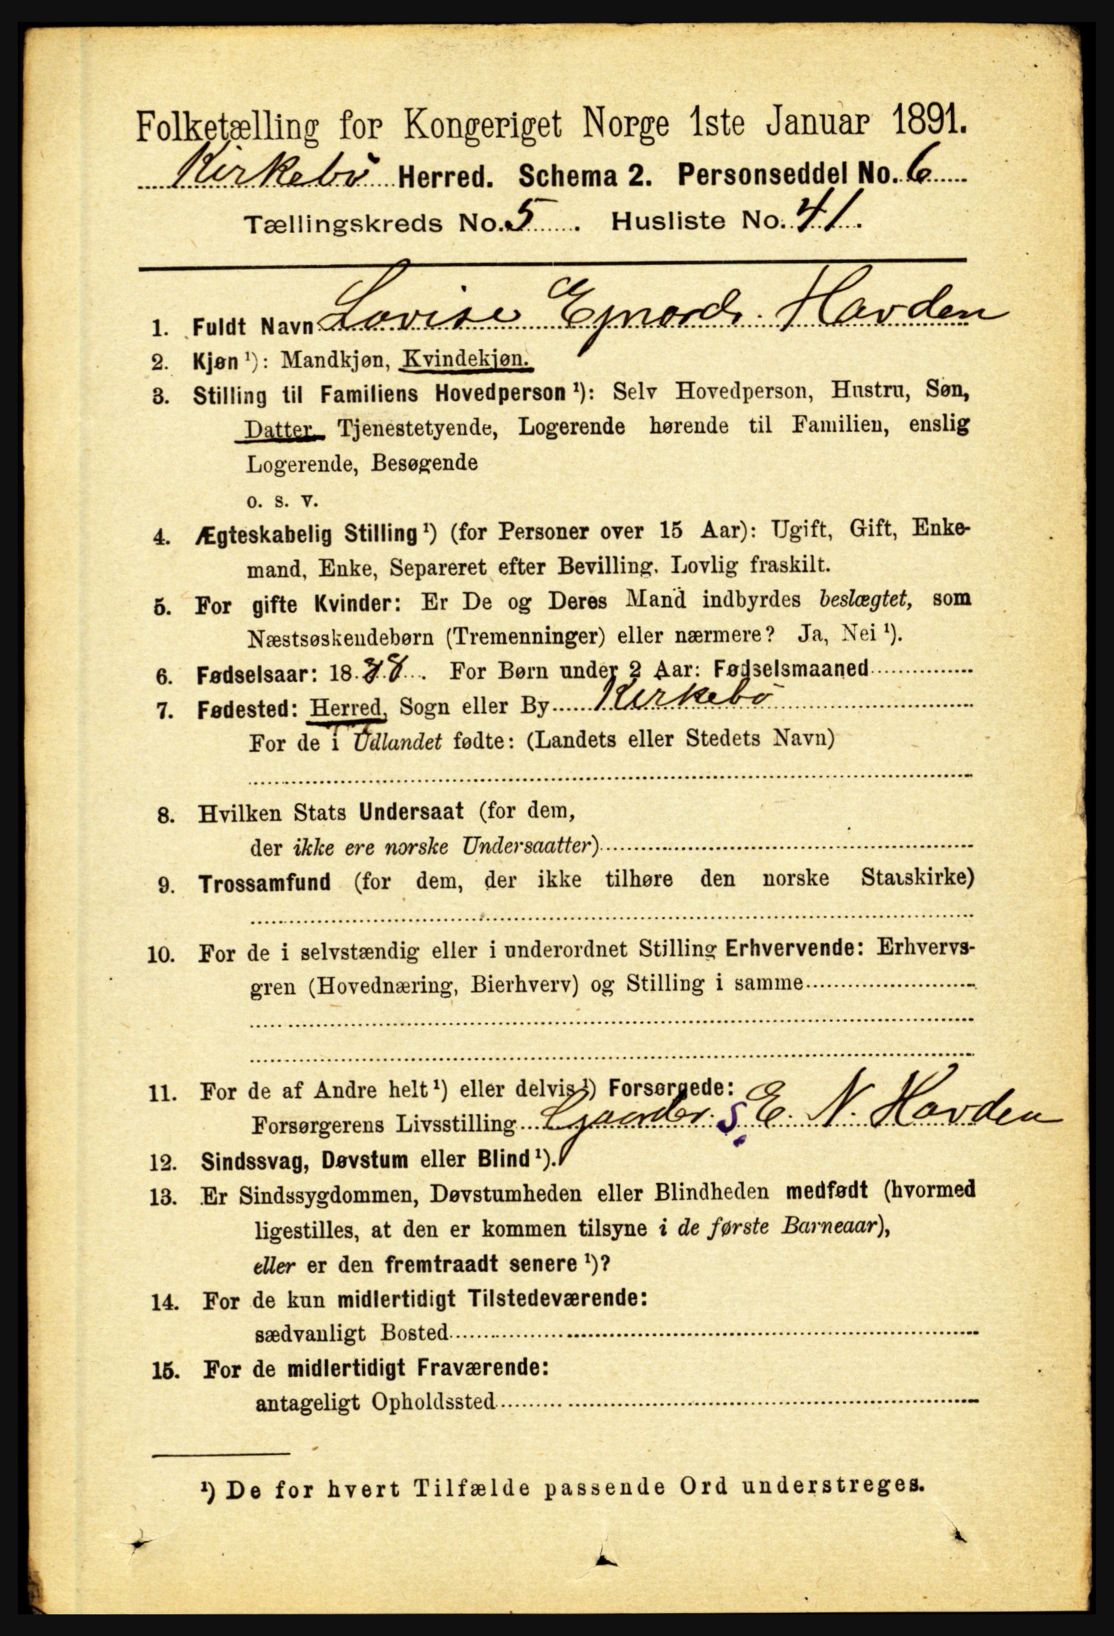 Folketælling for Kongeriget Norge 1ste Januar 1891.
Kirkebø Herred. Schema 2. Personseddel No. 6
Tællingskreds No. 5. Husliste No. 41.
1. Fuldt Navn Lovise Ejnards. Havden
2. Kjøn ¹): Mandkjøn, Kvindekjøn.
3. Stilling til Familiens Hovedperson ¹): Selv Hovedperson, Hustru, Søn,
Datter, Tjenestetyende, Logerende hørende til Familien, enslig
Logerende, Besøgende
o. s. v.
4. Ægteskabelig Stilling ¹) (for Personer over 15 Aar): Ugift, Gift, Enke-
mand, Enke, Separeret efter Bevilling, Lovlig fraskilt.
5. For gifte Kvinder: Er De og Deres Mand indbyrdes beslægtet, som
Næstsøskendebørn (Tremenninger) eller nærmere? Ja, Nei ¹).
6. Fødselsaar: 1888. For Børn under 2 Aar: Fødselsmaaned
7. Fødested: Herred, Sogn eller By Kirkebø
For de i Udlandet fødte: (Landets eller Stedets Navn)
8. Hvilken Stats Undersaat (for dem,
der ikke ere norske Undersaatter)
9. Trossamfund (for dem, der ikke tilhøre den norske Statskirke)
10. For de i selvstændig eller i underordnet Stilling Erhvervende: Erhvervs-
gren (Hovednæring, Bierhverv) og Stilling i samme
11. For de af Andre helt ¹) eller delvis ¹) Forsørgede:
Forsørgerens Livsstilling Gaardbr. S. E. N. Havden
12. Sindssvag, Døvstum eller Blind ¹).
13. Er Sindssygdommen, Døvstumheden eller Blindheden medfødt (hvormed
ligestilles, at den er kommen tilsyne i de første Barneaar),
eller er den fremtraadt senere ¹)?
14. For de kun midlertidigt Tilstedeværende:
sædvanligt Bosted
15. For de midlertidigt Fraværende:
antageligt Opholdssted
¹) De for hvert Tilfælde passende Ord understreges.